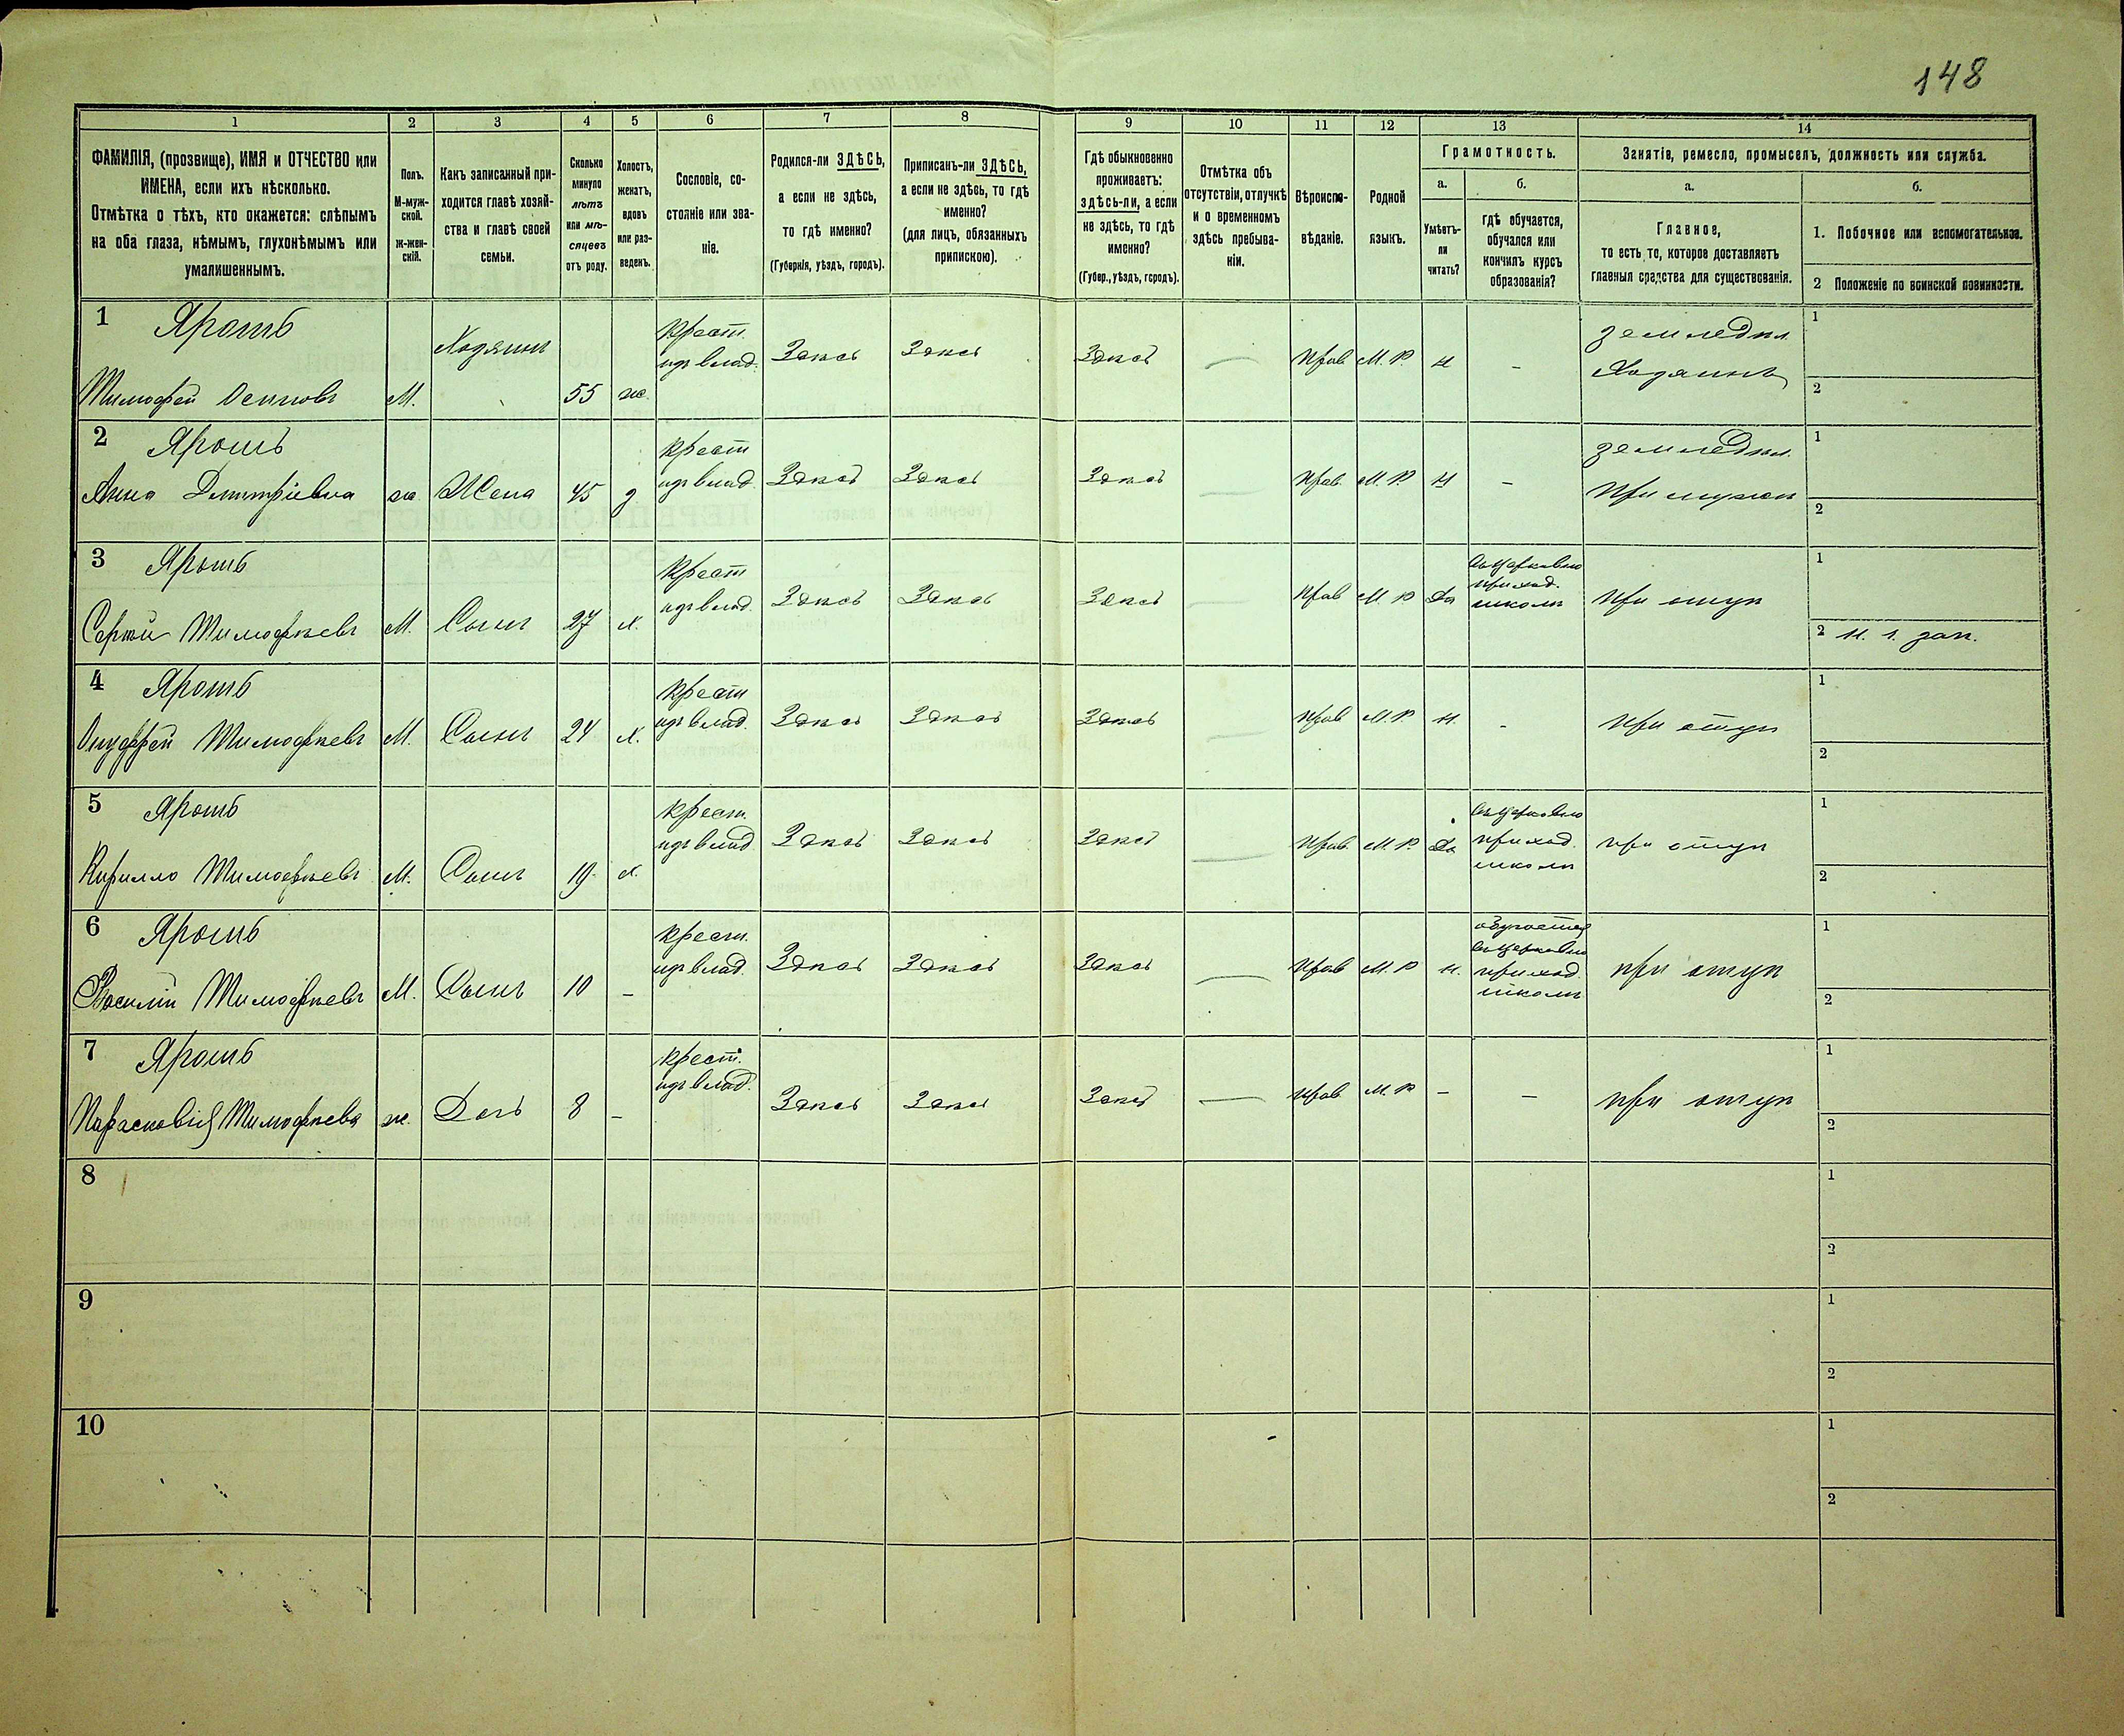 148
1 2 3 4 5 6 7 8 9 10 11 12 13 14
ФАМИЛІЯ, (прозвище), ИМЯ и ОТЧЕСТВО или
ИМЕНА, если ихъ нѣсколько.
Отмѣтка о тѣхъ, кто окажется: слѣпымъ
на оба глаза, нѣмымъ, глухонѣмымъ или
умалишеннымъ.
Полъ.
М-муж-
ской.
Ж-жен-
скій.
Какъ записанный при-
ходится главѣ хозяй-
ства и главѣ своей
семьи.
Сколько
минуло
лѣтъ
или мѣ-
сяцевъ
отъ роду.
Холостъ,
женатъ,
вдовъ
или раз-
веденъ.
Сословіе, со-
стояніе или зва-
ніе.
Родился-ли ЗДѢСЬ,
а если не здѣсь,
то гдѣ именно?
(Губернія, уѣздъ, городъ).
Приписанъ-ли ЗДѢСЬ,
а если не здѣсь, то гдѣ
именно?
(для лицъ, обязанныхъ
припискою).
Гдѣ обыкновенно
проживаетъ:
здѣсь-ли, а если
не здѣсь, то гдѣ
именно?
(Губер., уѣздъ, городъ).
Отмѣтка объ
отсутствіи, отлучкѣ
и о временномъ
здѣсь пребыва-
ніи.
Вѣроиспо-
вѣданіе.
Родной
языкъ.
Грамотность.
а.
Умѣетъ-
ли
читать?
б.
гдѣ обучается,
обучался или
кончилъ курсъ
образованія?
Занятіе, ремесло, промыселъ, должность или служба.
а.
Главное,
то есть то, которое доставляетъ
главныя средства для существованія.
б.
1. Побочное или вспомогательное.
2 Положеніе по воинской повинности.
1 Ярошъ
Тимофей Осиповъ М. Хозяинъ 55 ж. крест. изъ влад. Здѣсь Здѣсь Здѣсь — Прав М. Р. н - земледѣл. Хозяинъ 1 2
2 Ярошъ
Анна Димитріевна ж. Жена 45 з крест изъ влад. Здѣсь Здѣсь Здѣсь — Прав. М. Р. н - земледѣл. При мужѣ 1 2
3 Ярошъ
Сергій Тимофѣевъ М. Сынъ 27 х. крест изъ влад. Здѣсь Здѣсь Здѣсь — Прав М. Р да въ церковно приход. школѣ при отцѣ 1
2
4 Ярошъ
Онуфрій Тимофѣевъ М. Сынъ 24 х. крест изъ влад. Здѣсь Здѣсь Здѣсь — Прав М. Р. н. - при отцѣ 1 2
5 Ярошъ
Кирилло Тимофѣевъ М. Сынъ 19 х. крест. изъ влад Здѣсь Здѣсь Здѣсь — Прав. М. Р. да въ церковно приход. школѣ при отцѣ 1 2
6 Ярошъ
Василій Тимофѣевъ М. Сынъ 10 - крест. изъ влад. Здѣсь Здѣсь Здѣсь — Прав М. Р н. обучается въ церковно приход. школѣ при отцѣ 1 2
7 Ярошъ
Параскевія Тимофѣева ж. Дочь 8 - крест. изъ влад. Здѣсь Здѣсь Здѣсь — Прав М. Р - - при отцѣ 1 2
8 1 2
9 1 2
10 1 2